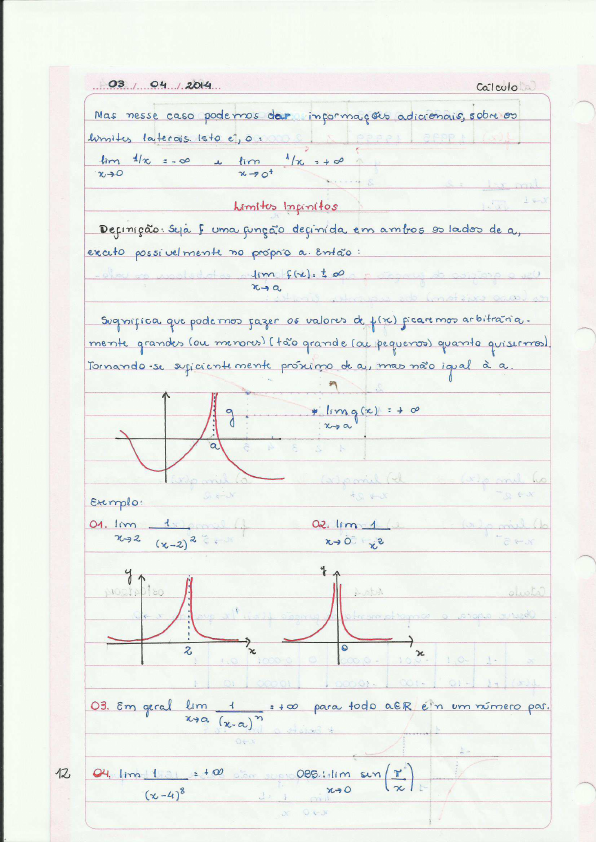 03 / 04 / 2014 Cálculo
Mas nesse caso podemos dar informações adicionais, sobre os
limites laterais. Isto é, o:
lim 1/x = -∞ e lim 1/x = +∞
x→0 x→0⁺
Limites Infinitos
Definição: Seja f uma função definida em ambos os lados de a,
exceto possivelmente no próprio a. Então:
lim f(x) = ± ∞
x→a
Significa que podemos fazer os valores de f(x) ficarmos arbitrária-
mente grandes (ou menores) (tão grande (ou pequenos) quanto quisermos).
Tornando-se suficientemente próximo de a, mas não igual à a.
g * lim g(x) = + ∞
a x→a
Exemplo:
01. lim 1 02. lim 1
x→2 (x-2)² x→0 x²
y y
2 x 0 x
03. Em geral lim 1 = +∞ para todo a∈R e n um número par.
x→a (x-a)ⁿ
12 04. lim 1 = +∞ OBS.: lim sen(π/x)
(x-4)⁸ x→0